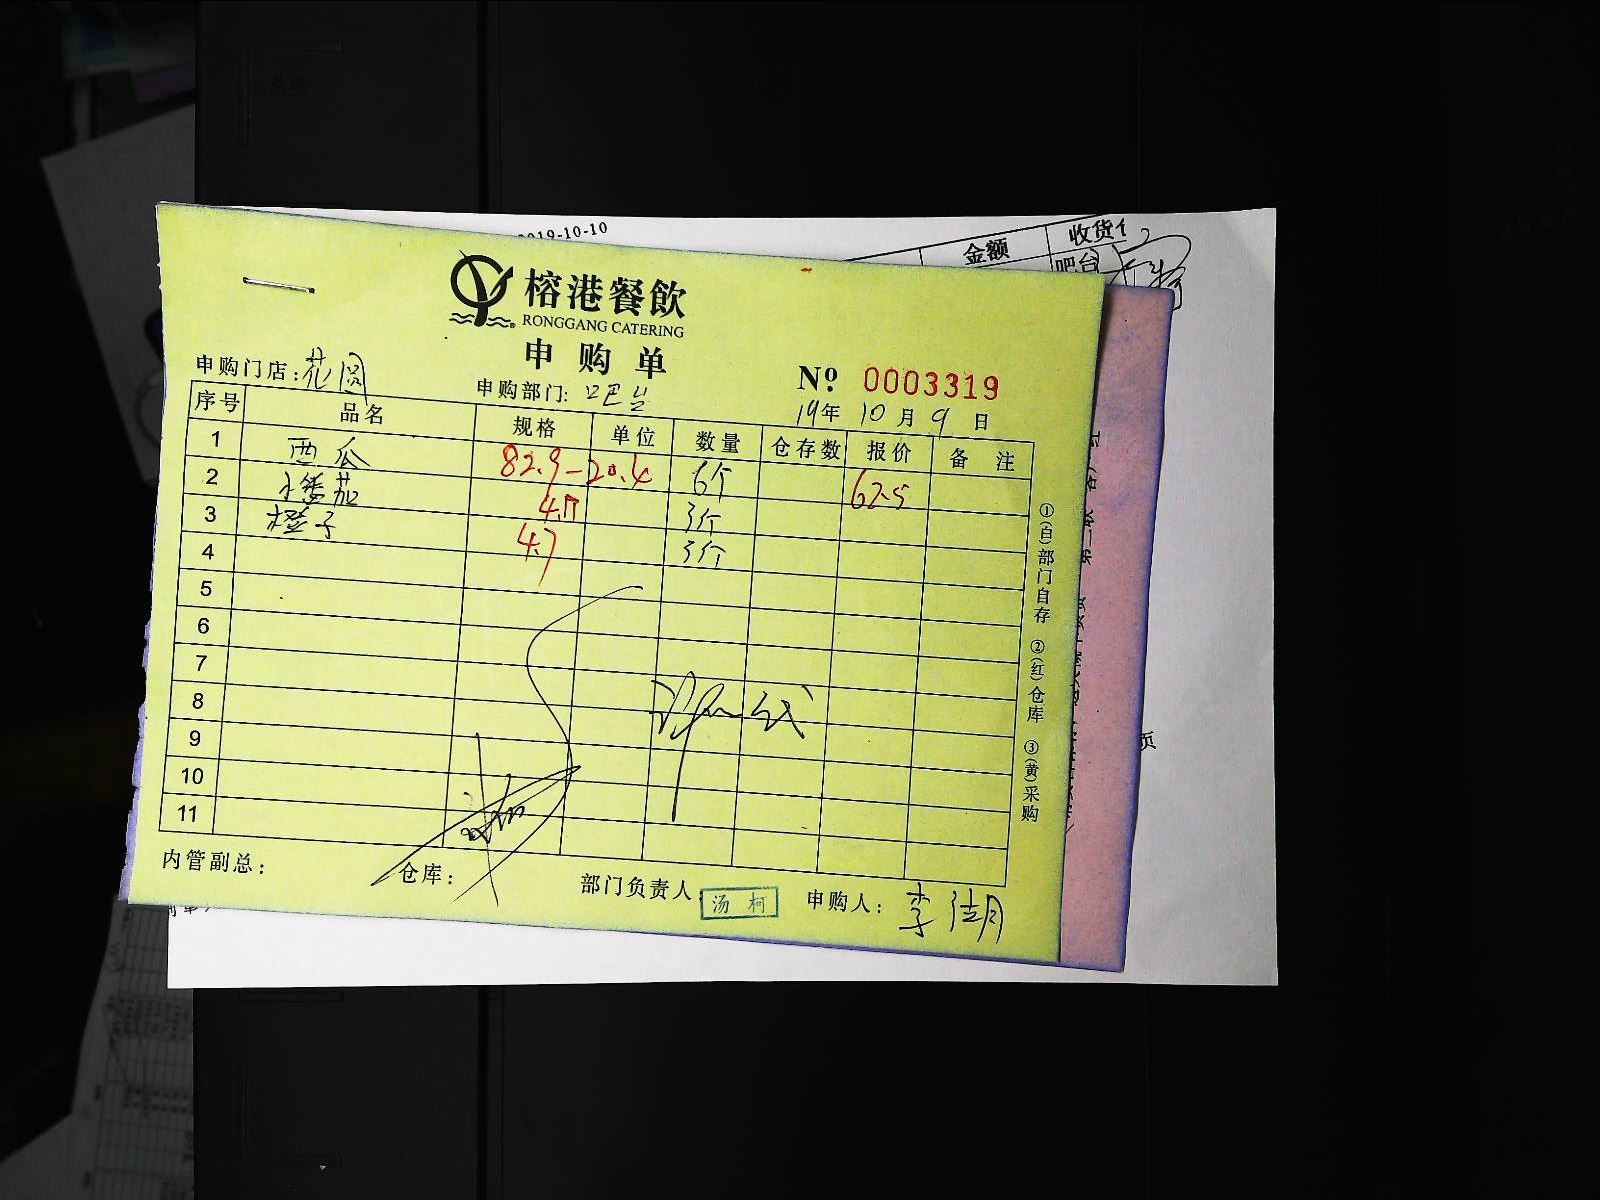 2019-10-10
金额 收货
吧台
榕港餐飲
RONGGANG CATERING
申购单
申购门店:花园 申购部门:吧台 Nº 0003319
19年 10月 9日
序号 品名 规格 单位 数量 仓存数 报价 备 注
1 西瓜 82.9-20.4 6个 62.5
2 4.7 3个
3 橙子 4.7 3个
4
5
6
7
8
9
10
11
①(白)部门自存 ②(红)仓库 ③(黄)采购
页
内管副总: 仓库: 部门负责人 汤柯 申购人: 李